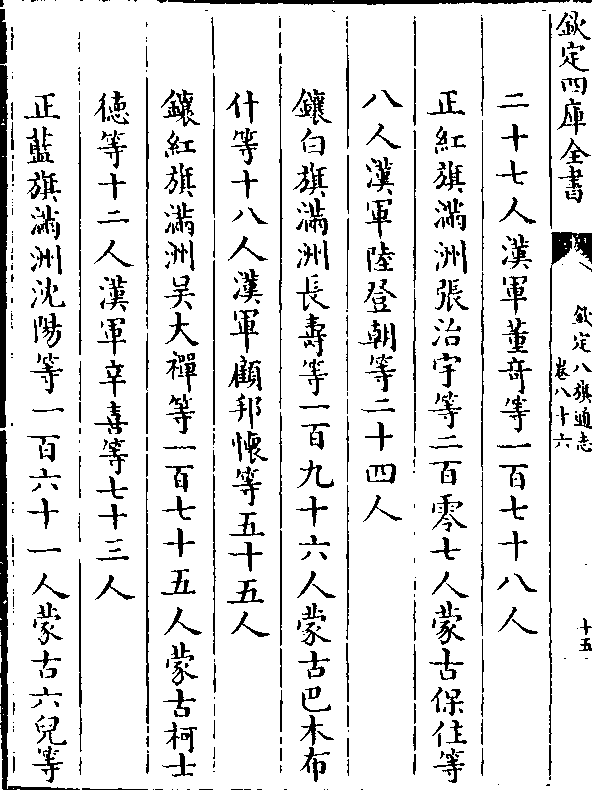 欽定四庫全書
欽定八旗通志
卷八十六
十五
二十七人漢軍董竒等一百七十八人
正紅旗滿洲張治宇等二百零七人蒙古保住等
八人漢軍陸登朝等二十四人
鑲白旗滿洲長壽等一百九十六人蒙古巴木布
什等十八人漢軍顧邦懷等五十五人
鑲紅旗滿洲吴大禪等一百七十五人蒙古柯士
徳等十二人漢軍辛喜等七十三人
正藍旗滿洲沈陽等一百六十一人蒙古六兒等